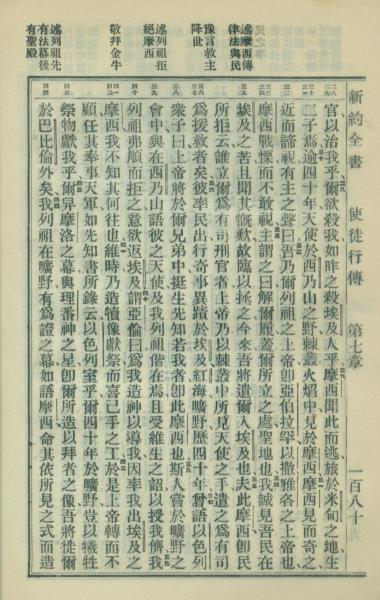 新約全書 使徒行傳 第七章 一百八十九
述摩西傳
律法與民
豫言救主
降世
述列祖拒
絕摩西
敬拜金牛
述列祖先
有法幕後
有聖殿
官以治我乎爾欲殺我如昨之殺埃及人乎摩西聞此而逃旅於米甸之地生
二子焉逾四十年天使於西乃山之野棘叢火焰中見於摩西摩西見而奇之
近而諦視有主之聲曰吾乃爾列祖之上帝卽亞伯拉罕以撒雅各之上帝也
摩西戰慄而不敢視主謂之曰解爾履蓋爾所立之處聖地也我誠見吾民在
埃及之苦且聞其慨歎故臨以拯之今來吾將遣爾入埃及也夫此摩西卽民
所拒云誰立爾爲有司刑官者上帝乃以棘叢中所見天使之手遣之爲有司
爲援救者矣彼率民出行奇事異蹟於埃及紅海曠野歷四十年曾語以色列
衆子曰上帝將於爾兄弟中挺生先知若我者卽此摩西也斯人嘗於曠野之
會中與在西乃山語彼之天使及我列祖偕在焉且受維生之詔以授我儕我
列祖弗順而拒之意欲返埃及謂亞倫曰爲我造神以導我因率我出埃及之
摩西我不知其何往也維時乃造犢像獻祭而喜己手之工於是上帝轉而不
顧任其奉事天軍如先知書所錄云以色列室乎爾四十年於曠野豈以犧牲
祭物獻我乎爾舁摩洛之幕與理番神之星卽爾所造以拜者之像吾將徙爾
於巴比倫外矣我列祖在曠野有爲證之幕如語摩西命其依所見之式而造